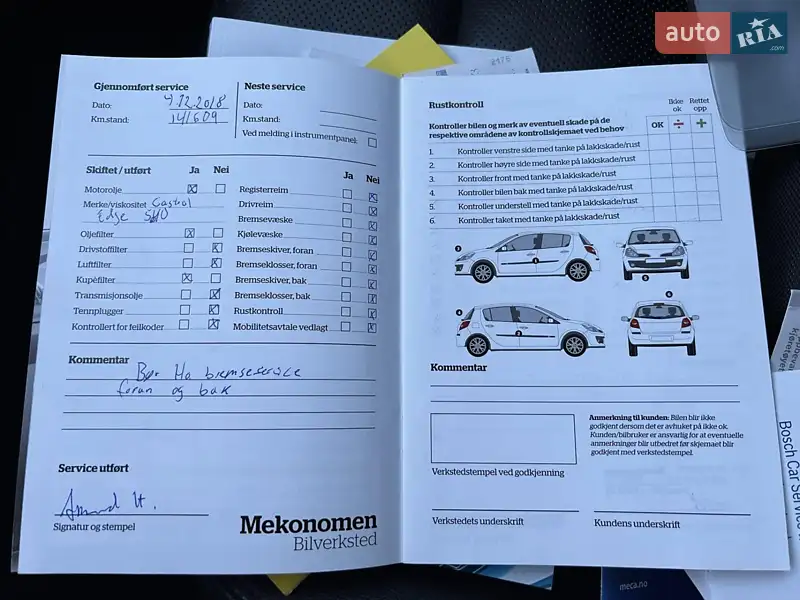 auto RIA.com
Gjennomført service
Dato: 4.12.2018
Km.stand: 141609
Neste service
Dato:
Km.stand:
Ved melding i instrumentpanel:
Skiftet / utført Ja Nei
Motorolje
Merke/viskositet Castrol
Edge 5W0
Oljefilter
Drivstoffilter
Luftfilter
Kupéfilter
Transmisjonsolje
Tennplugger
Kontrollert for feilkoder
Ja Nei
Registerreim
Drivreim
Bremsevæske
Kjølevæske
Bremseskiver, foran
Bremseklosser, foran
Bremseskiver, bak
Bremseklosser, bak
Rustkontroll
Mobilitetsavtale vedlagt
Kommentar
Bør Ha bremseservice
foran og bak
Service utført
Signatur og stempel
Mekonomen
Bilverksted
Rustkontroll
Kontroller bilen og merk av eventuell skade på de
respektive områdene av kontrollskjemaet ved behov
OK Ikke ok ÷ Rettet opp +
1. Kontroller venstre side med tanke på lakkskade/rust
2. Kontroller høyre side med tanke på lakkskade/rust
3. Kontroller front med tanke på lakkskade/rust
4. Kontroller bilen bak med tanke på lakkskade/rust
5. Kontroller understell med tanke på lakkskade/rust
6. Kontroller taket med tanke på lakkskade/rust
Kommentar
Verkstedstempel ved godkjenning
Anmerkning til kunden: Bilen blir ikke
godkjent dersom det er avhuket på ikke ok.
Kunden/bilbruker er ansvarlig for at eventuelle
anmerkninger blir utbedret før skjemaet blir
godkjent med verkstedstempel.
Verkstedets underskrift
Kundens underskrift
Bosch Car Service
meca.no